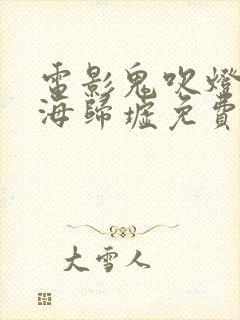 電影鬼吹燈
海歸墟免費
大雪人